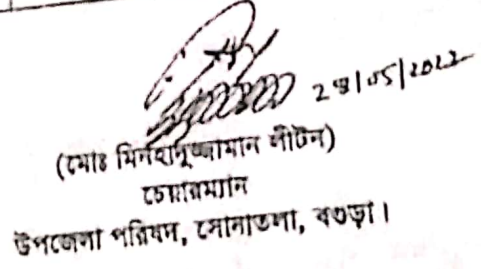 ২৪/০৫/২০২২
(মোঃ মিনহাদুজ্জামান লীটন)
চেয়ারম্যান
উপজেলা পরিষদ, সোনাতলা, বগুড়া।